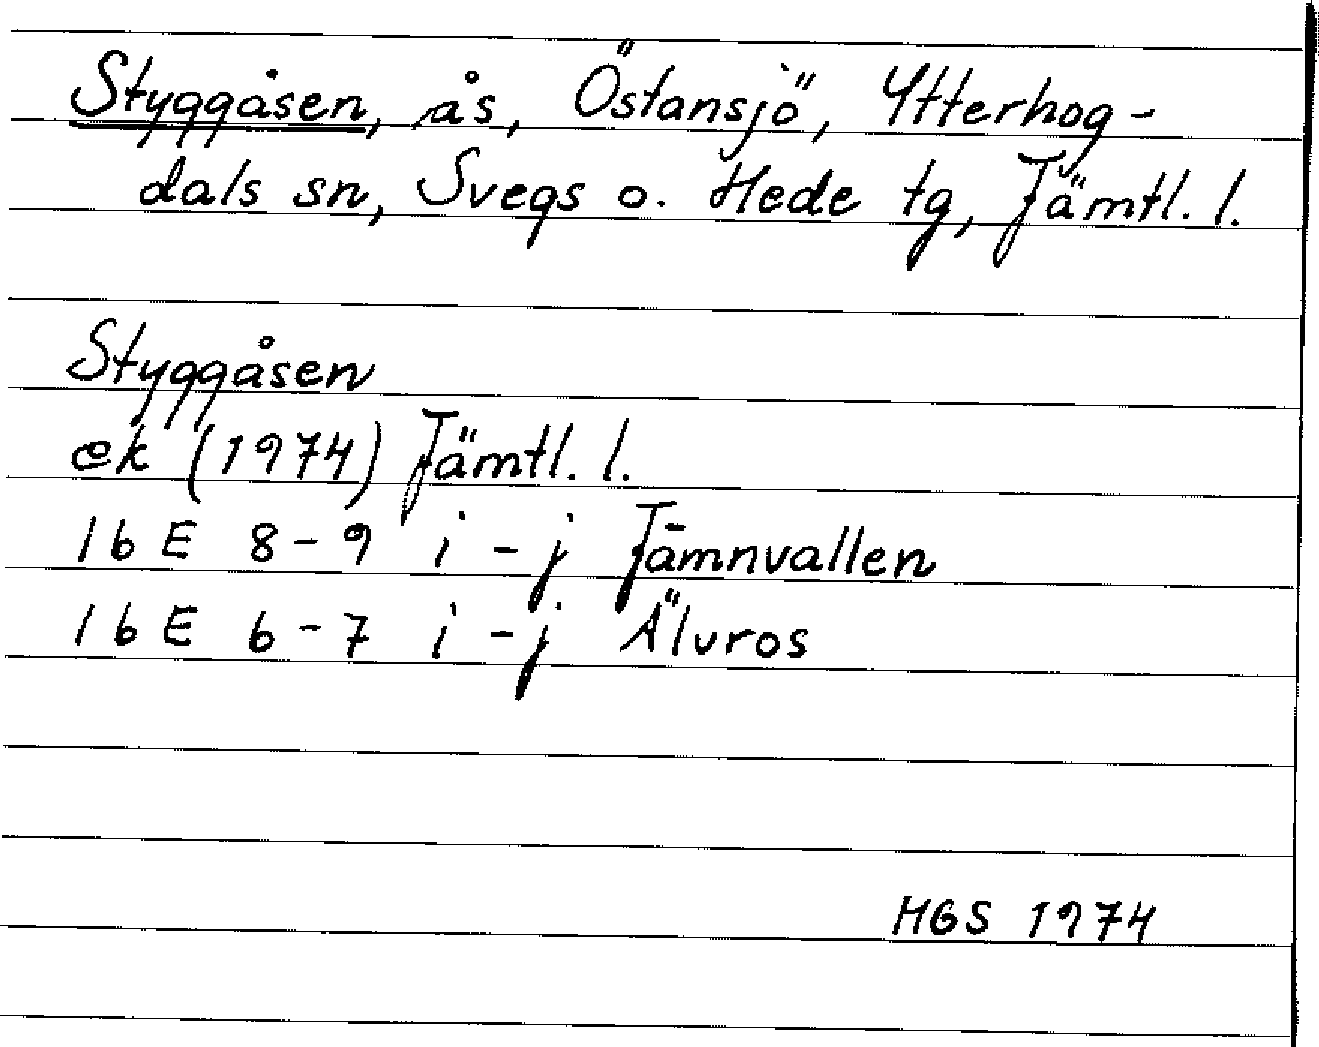 Styggåsen, ås, Östansjö, Ytterhog-
dals sn, Svegs o. Hede tg, Jämtl. l.
Styggåsen
ek (1974) Jämtl. l.
16 E 8-9 i - j Jämnvallen
16 E 6-7 i - j Älvros
MGS 1974